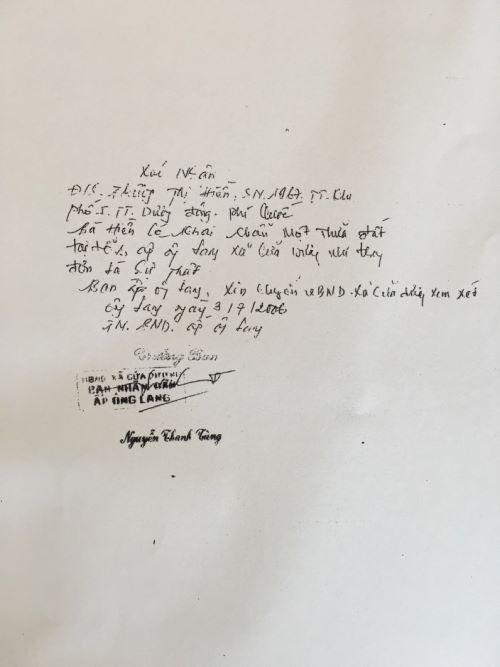 Xác Nhận
Đ/C. Thị Hiền. SN. 1967. TT. Khu
phố 5. TT. Dương Đông. Phú Quốc
bà Hiền Có Khai Một Thửa đất
tại ấp ông Lang xã Cửa như
đơn là Sự Thật
Ban ấp ông Lang, Xin Chuyển UBND. Xã Cửa xem xét
Ông Lang ngày 3/7/2006
TM. BND. ấp ông Lang
Trưởng Ban
UBND XÃ CỬA DƯƠNG
BAN NHÂN DÂN
ẤP ÔNG LANG
Nguyễn Thanh Tùng